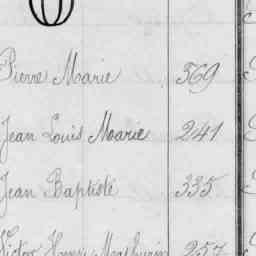 O
Pierre Marie 369
Jean Louis Marie 241
Jean Baptiste 335
Victor Henri Mathurin 257